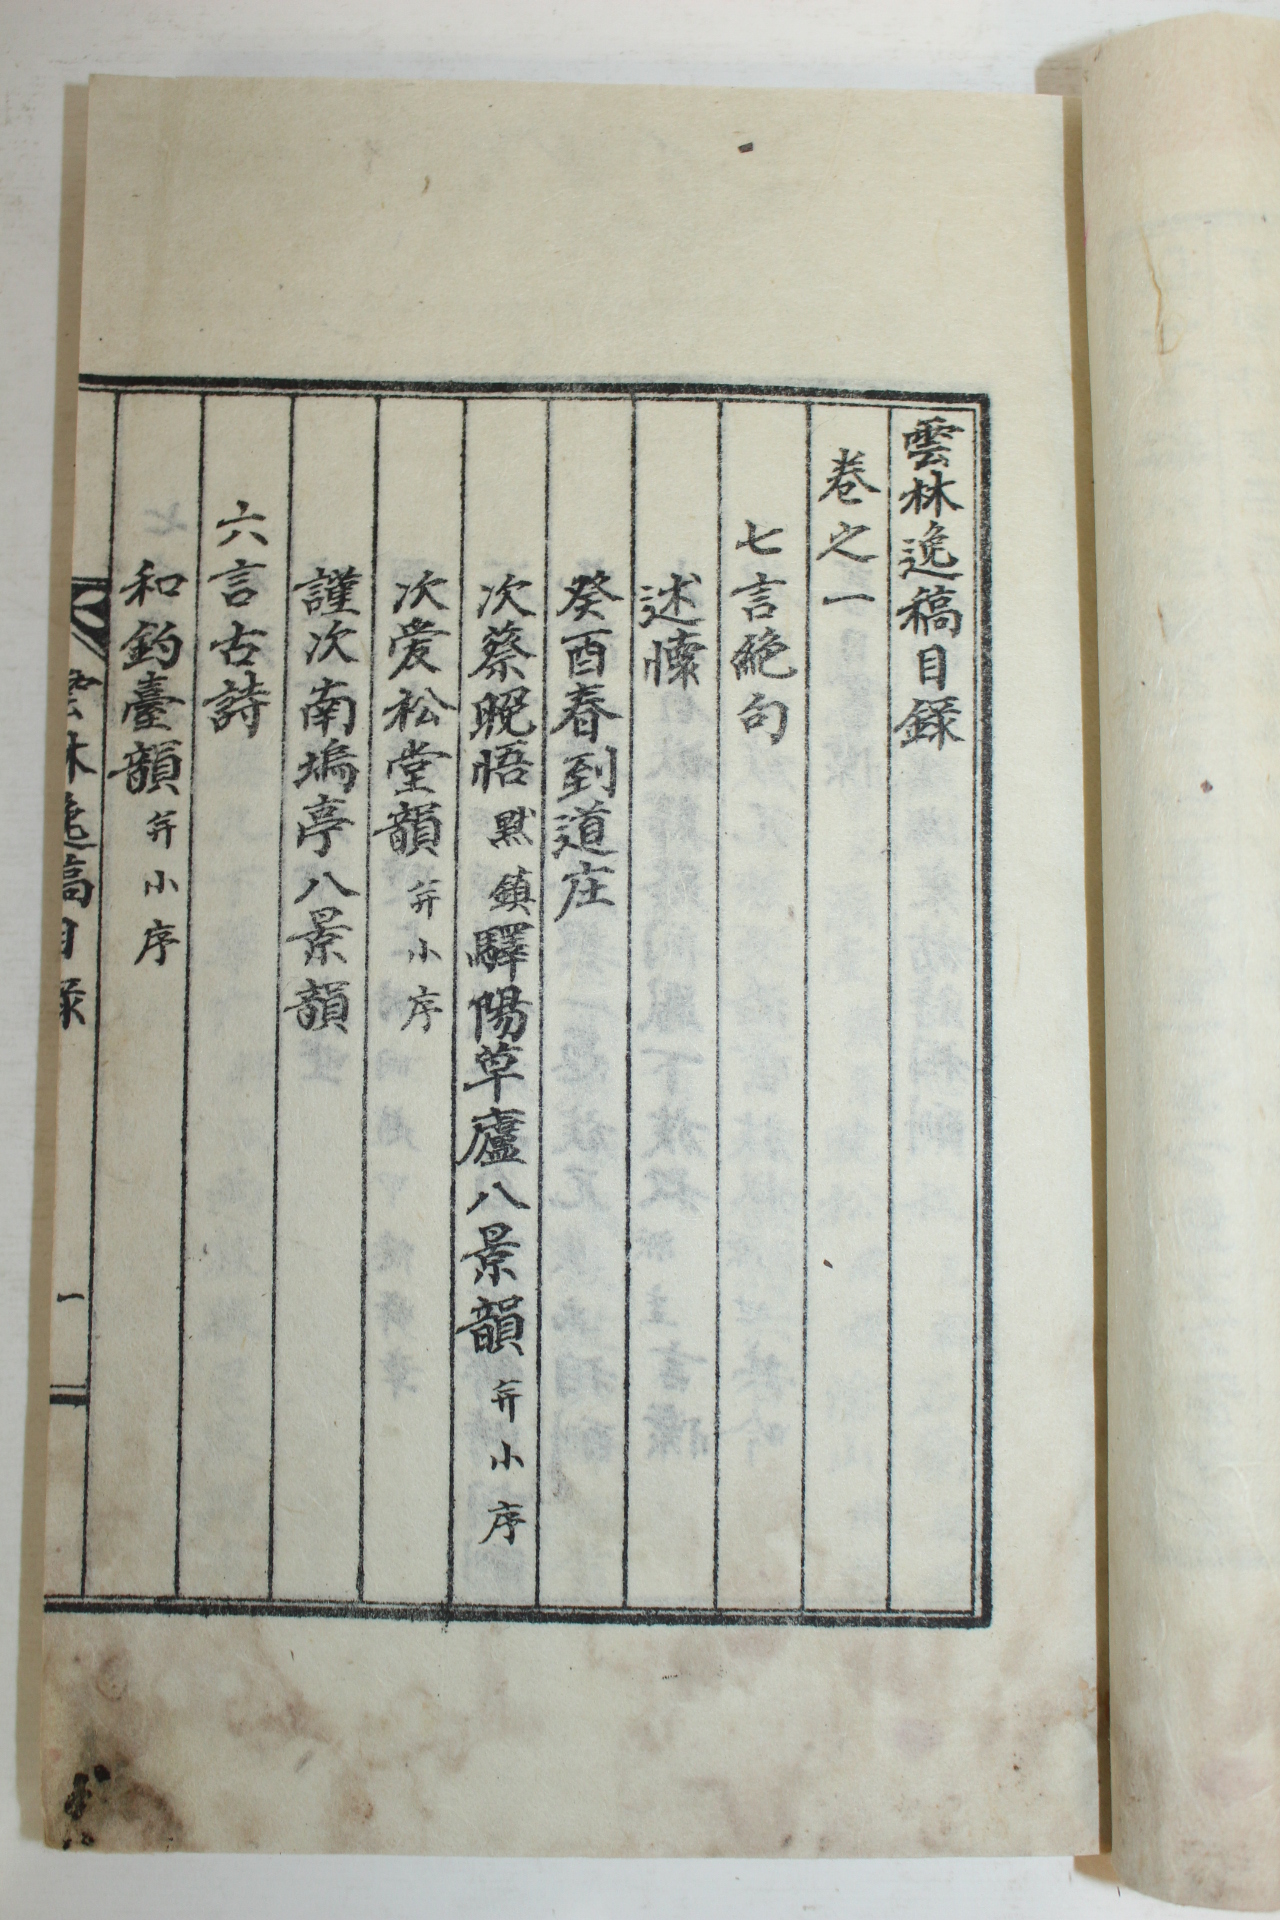 雲林逸稿目録
卷之一
七言絶句
述懷
癸酉春到道庄
次蔡晩悟默鎭驛陽草廬八景韻幷小序
次爱松堂韻幷小序
謹次南塢亭八景韻
六言古詩
和釣臺韻幷小序
雲林逸稿目録
一